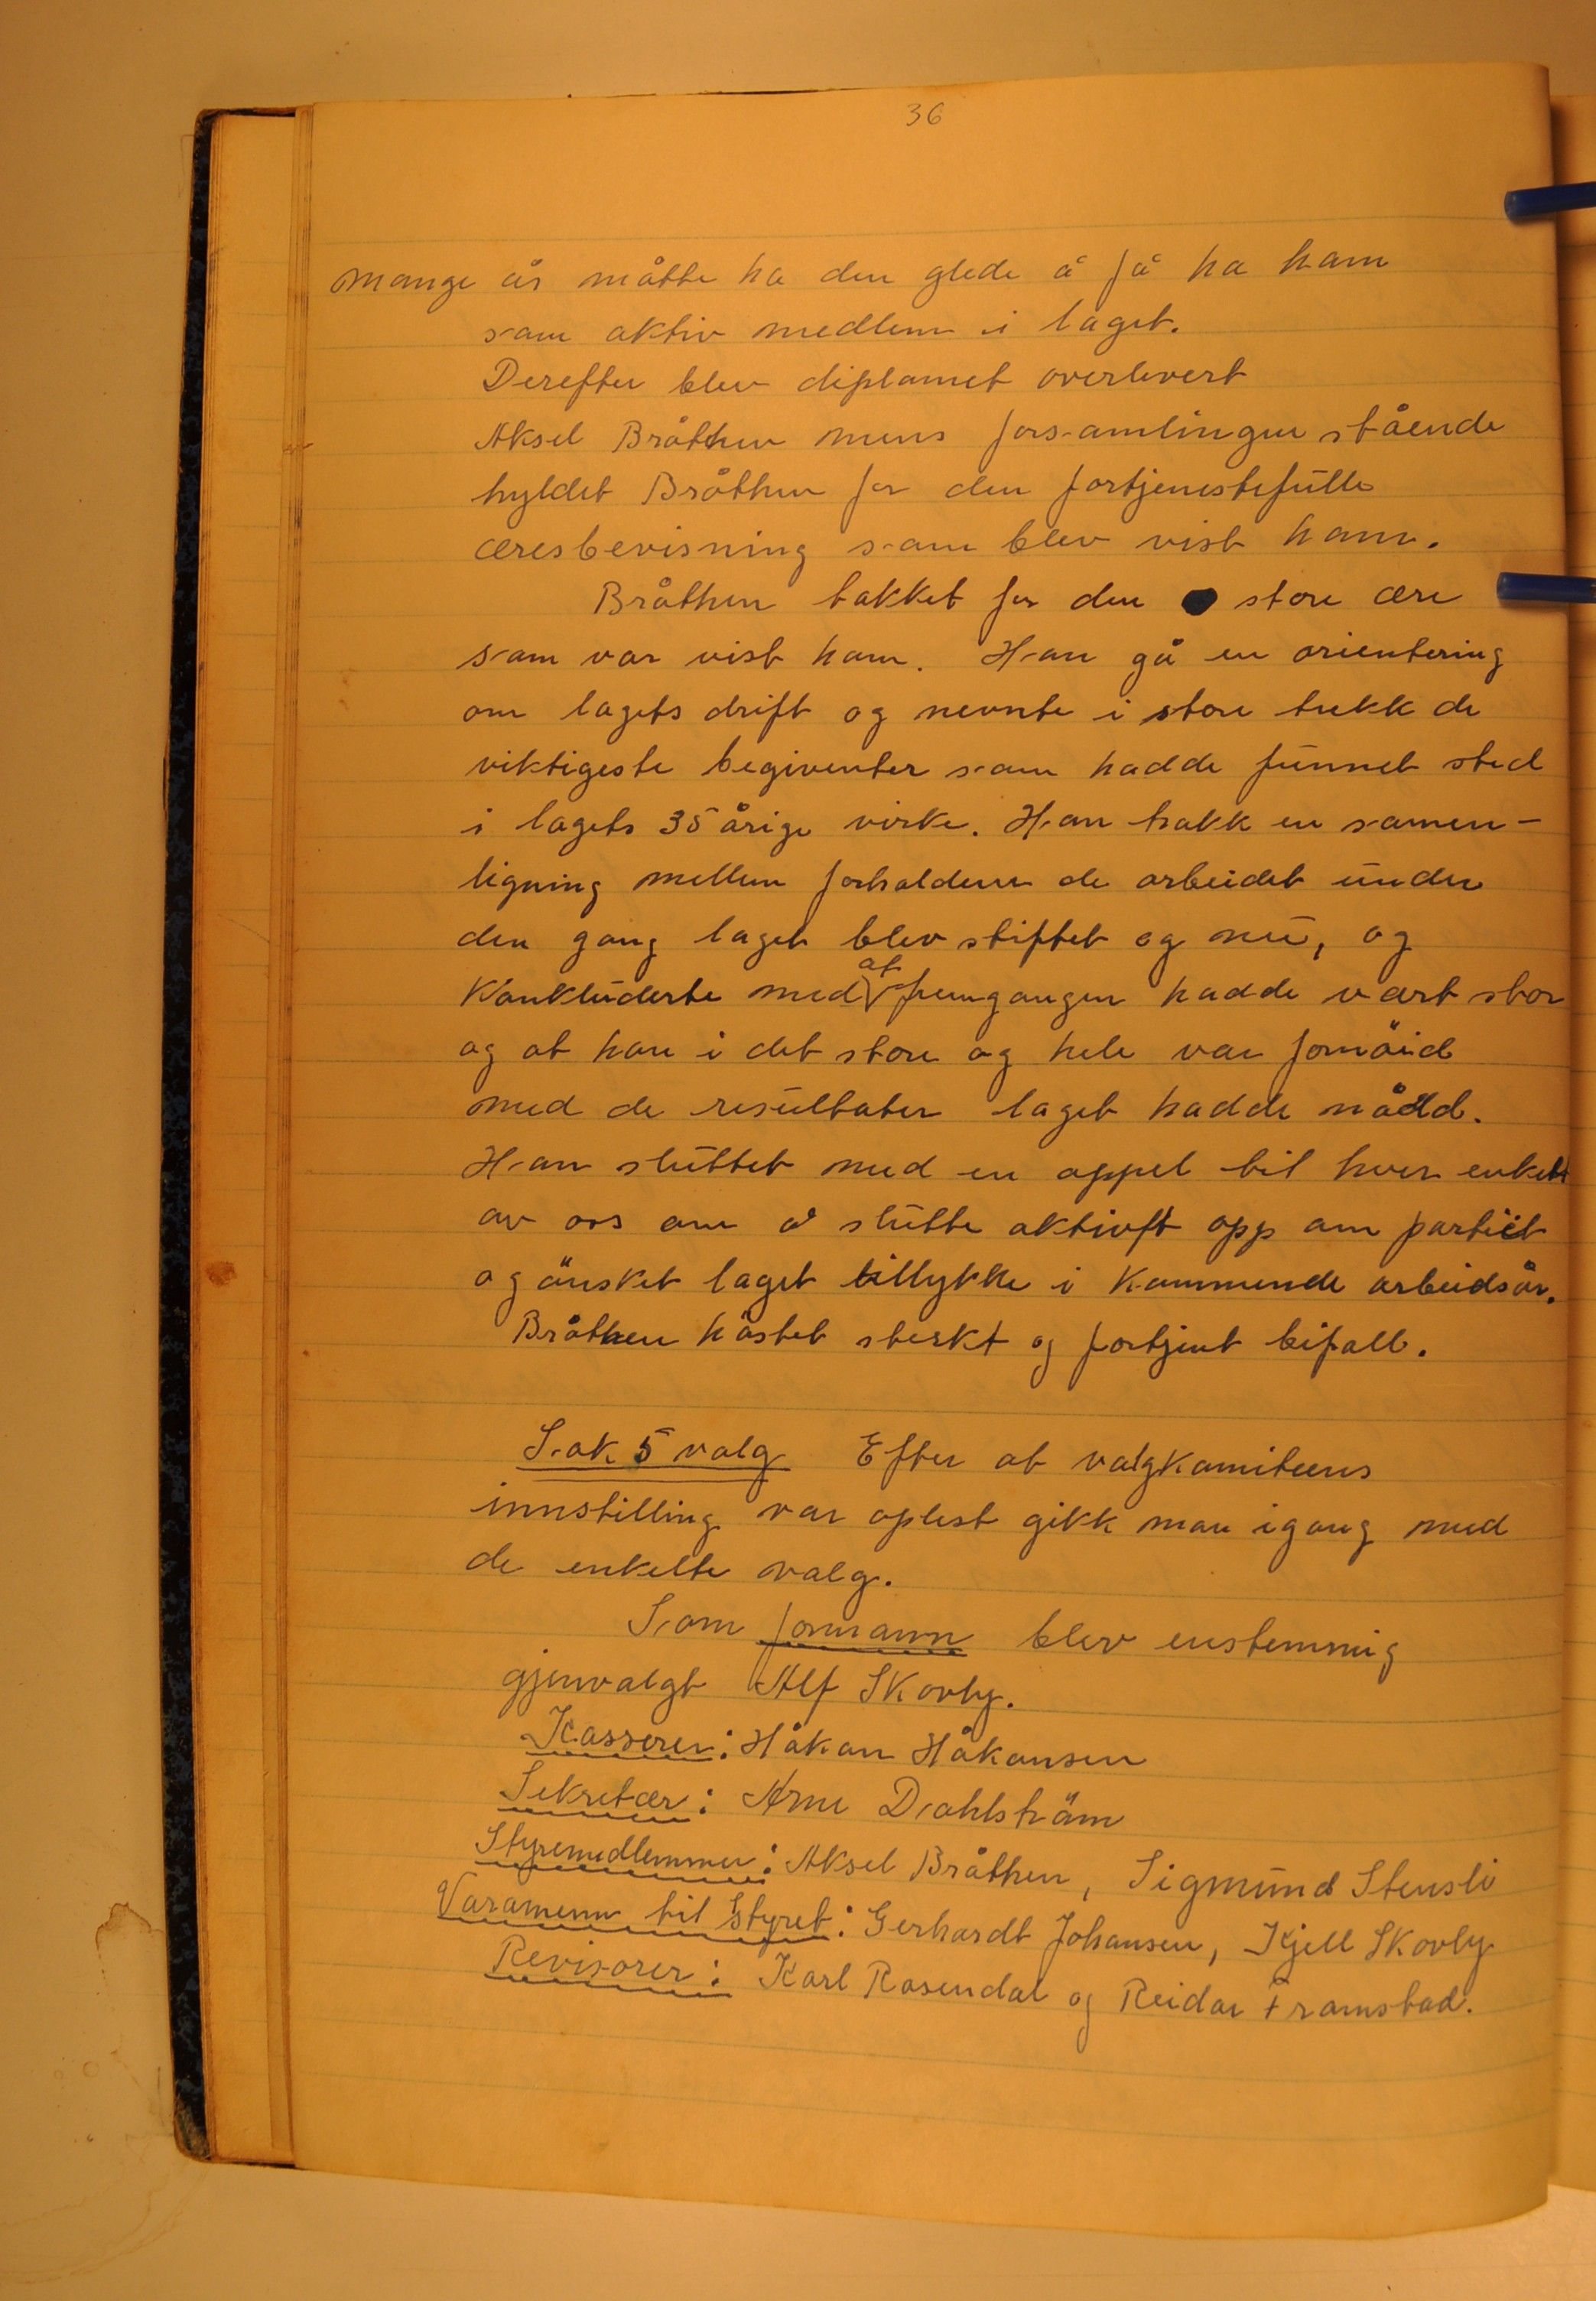 36
mange år måtte ha den glede å få ha ham
som aktiv medlem i laget.
Derefter blev diplomet overlevert
Aksel Bråthen mens forsamlingen stående
hyldet Bråthen for den fortjenestefulle
æresbevisning som blev vist ham.
Bråthen takket for den store ære
som var vist ham. Han gå en orientering
om lagets drift og nevnte i store trekk de
viktigeste begiventer som hadde funnet sted
i lagets 35 årige virke. Han trakk en samen-
ligning mellem forholdene de arbeidet under
den gang laget blev stiftet og nu, og
konkluderte med at fremgangen hadde vært stor
og at han i det store og hele var fornöid
med de resultater laget hadde nådd.
Han sluttet med en appel til hver enkelt
av oss om å slutte aktivt opp om partiet
og önsket laget tillykke i kommende arbeidsår.
Bråthen höstet sterkt og fortjent bifall.
Sak 5 valg Efter at valgkomiteens
innstilling var oplest gikk man igang med
de enkelte valg.
Som formann blev enstemmig
gjenvalgt Alf Skovly.
Kasserer: Håkon Håkonsen
Sekretær: Arne Dahlström
Styremedlemmer: Aksel Bråthen, Sigmund Stensli
Varamenn til styret: Gerhardt Johansen, Kjell Skovly
Revisorer: Karl Rosendal og Reidar Framstad.